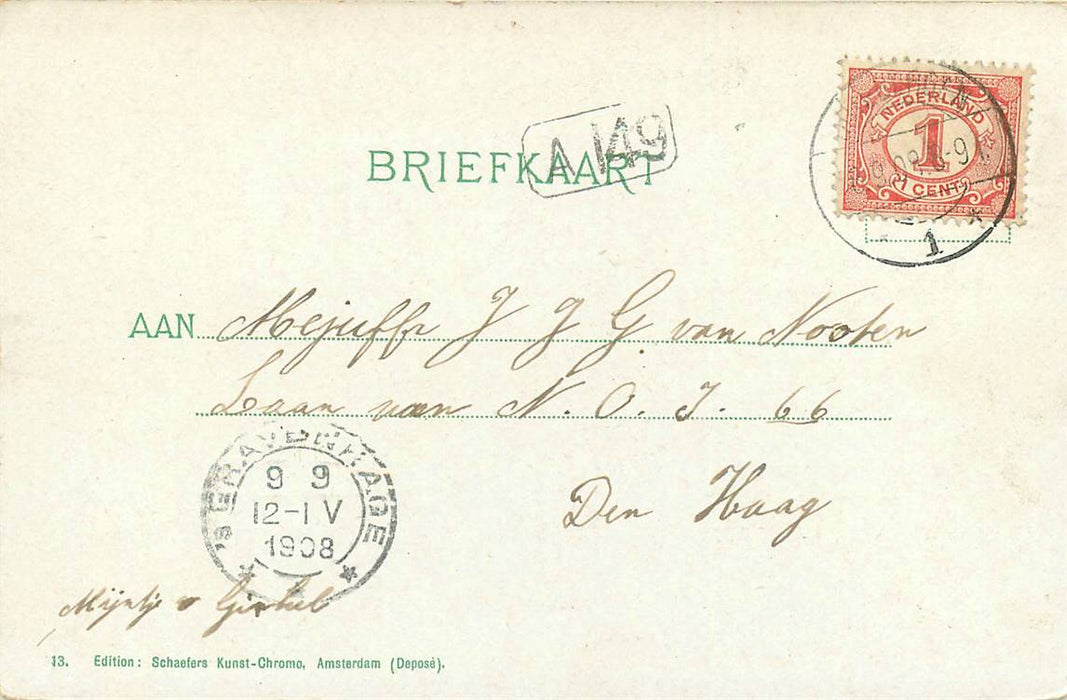 BRIEFKAART
A 149
NEDERLAND
1
1 CENT
1
AAN Mejuffr J J G van Nooten
Laan van N. O. J. 66
Den Haag
's GRAVENHAGE
9 9
12-1 V
1908
Mijntje v Ginkel
13. Edition: Schaefers Kunst-Chromo, Amsterdam (Deposé).